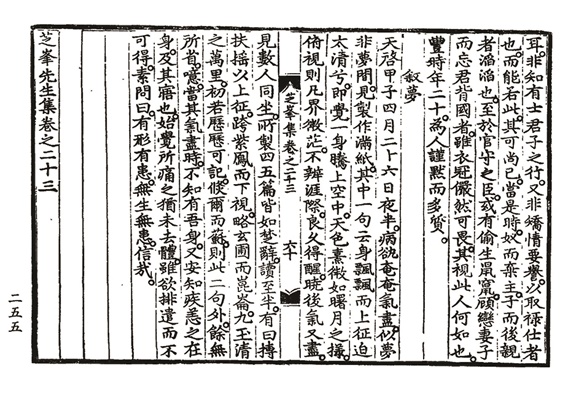 耳。非知有士君子之行。又非矯情要譽。以取祿仕者
也。而能若此。其可尚已。當是時。奴而棄主。子而後親
者滔滔也。至於官守之臣。或有偷生鼠竄。顧戀妻子
而忘君背國者。雖衣冠儼然可畏。其視此人何如也。
豐時年二十。爲人謹黙而多質。
叙夢
天啓甲子四月二十六日夜半。病欲奄奄氣盡。似夢
非夢間。見製作滿紙。其中一句云身飄飄而上征。迫
太清兮。即覺一身騰上空中。天色熹微如曙月之㨾。
俯視則凡界微茫。不辨涯際。良久得醒。曉後氣又盡。
芝峯集卷之二十三 六十
見數人同坐。所製四五篇皆如楚辭。讀至半。有曰搏
扶搖以上征。跨紫鳳而下視。略玄圃而崑崙。九玉清
之萬里。初若歷歷可記。倏爾而蘇。則此二句外。餘無
所省。噫。當其氣盡時。不知有吾身。又安知疾恙之在
身。及其寤也。始覺所痛之猶未去體。雖欲排遣而不
可得。素問曰。有形有患。無生無患。信哉。
芝峯先生集卷之二十三
二五五